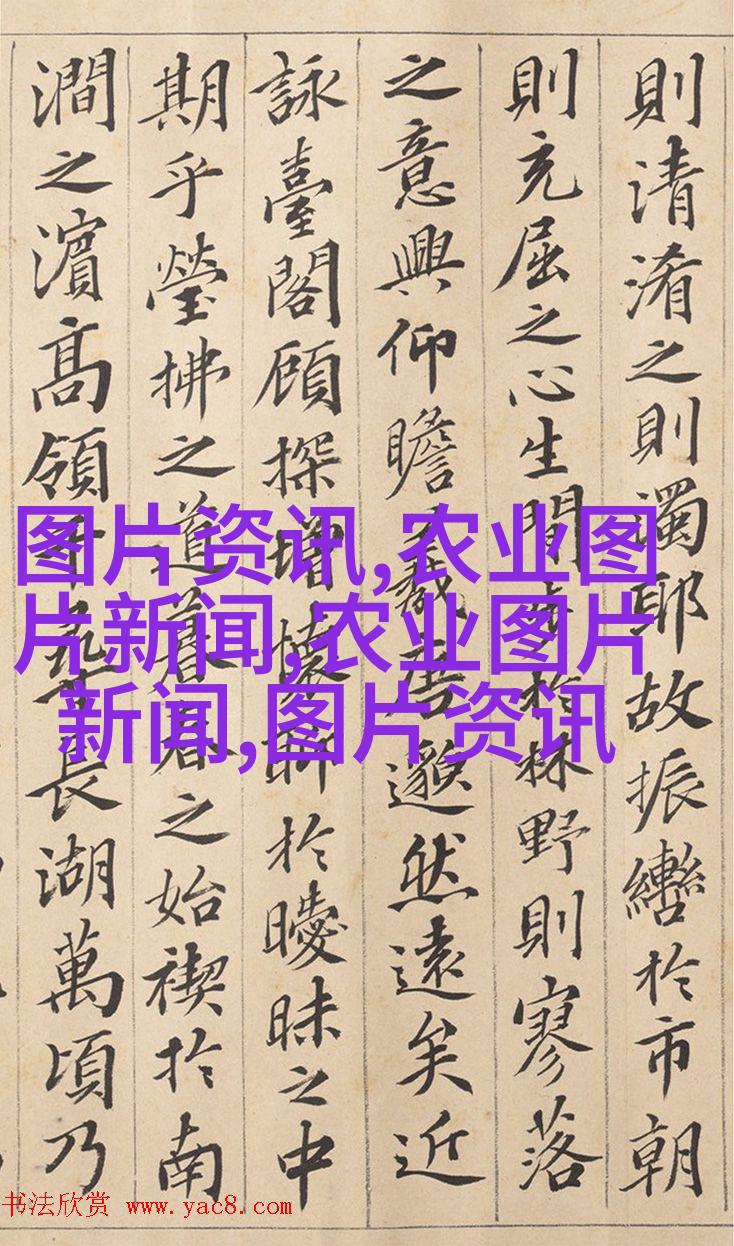 則清淆之則濁耶故振轡於市朝
則充屈之心生閒步於林野則寥落
之意興仰瞻羲唐邈然遠矣近
詠臺閣顧探增懷聊於曖昧之中
期乎瑩拂之道暮春之始禊於南
澗之濱高領千尋長湖萬頃乃
图片资讯,农业图
片新闻,农业图片
新闻,图片资讯
书法欣赏 www.yac8.com